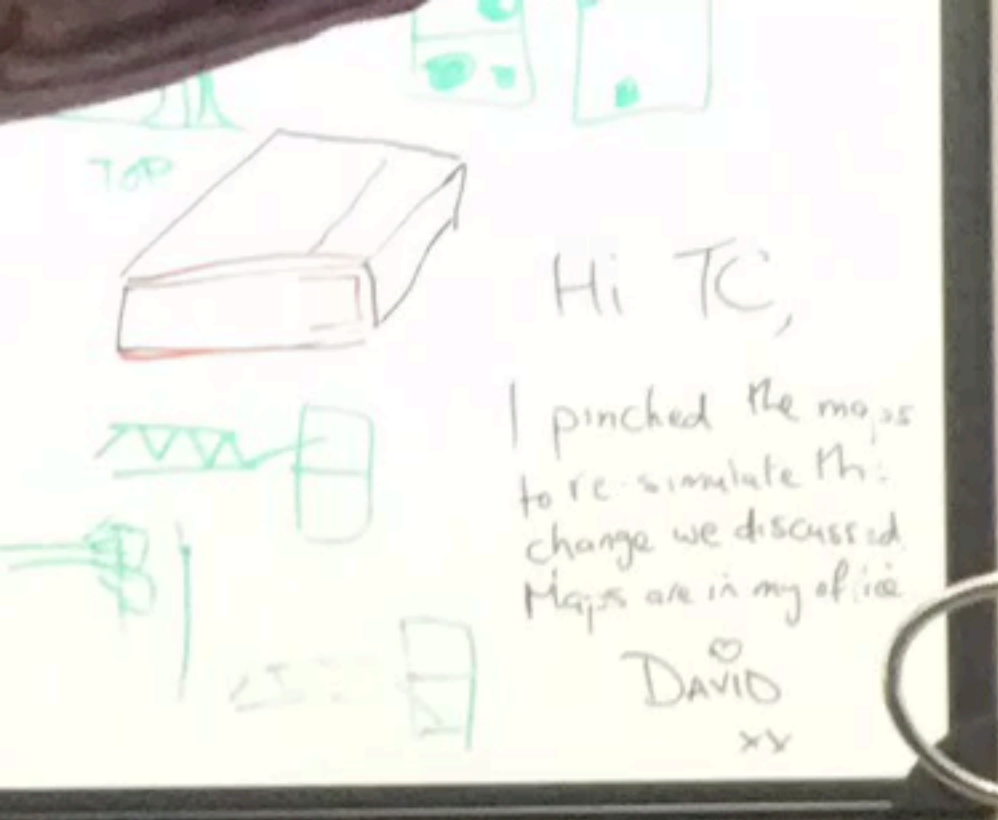 TOP
Hi TC,
I pinched the maps
to re-simulate the
change we discussed.
Maps are in my office
DAVID
xx